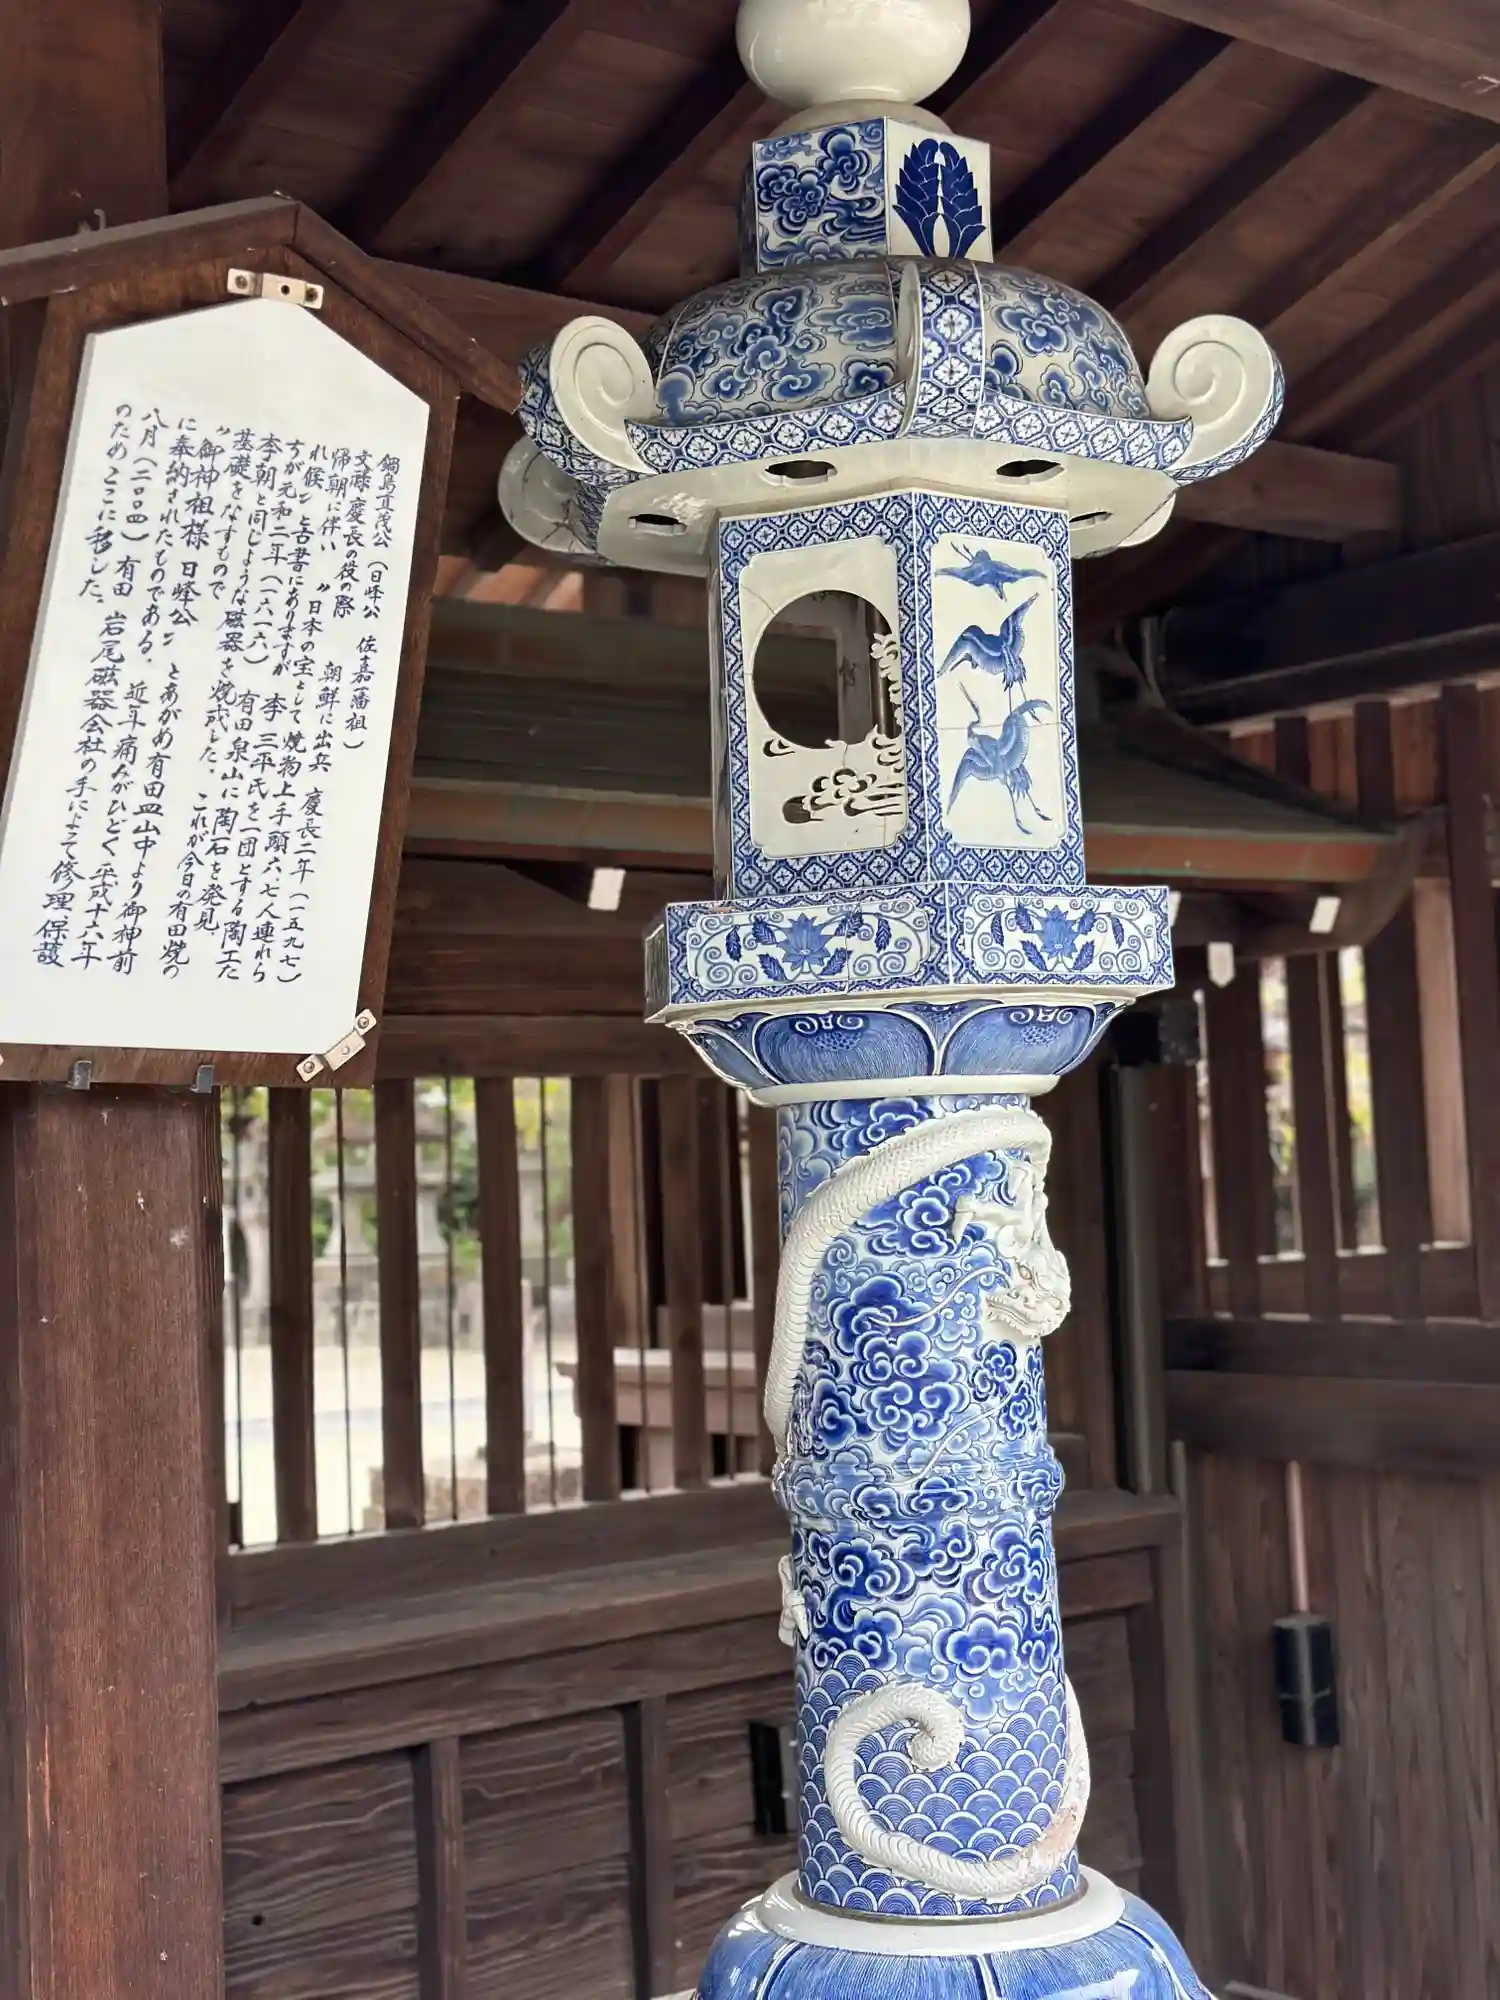 鍋島直茂公（日峰公　佐嘉藩祖）
文禄慶長の役の際　朝鮮に出兵　慶長二年（一五九七）
帰朝に伴い　〃日本の宝として焼物上手頭六、七人連れら
れ候〃と古書にありますが　李三平氏を一団とする陶工た
ちが元和二年（一六一六）有田泉山に陶石を発見
李朝と同じような磁器を焼成した。これが今日の有田焼の
基礎をなすもので
〃御神祖様　日峰公〃　とあがめ有田皿山中より御神前
に奉納されたものである。近年痛みがひどく平成十六年
八月（二〇〇四）有田　岩尾磁器会社の手によって修理、保護
のためここに移した。